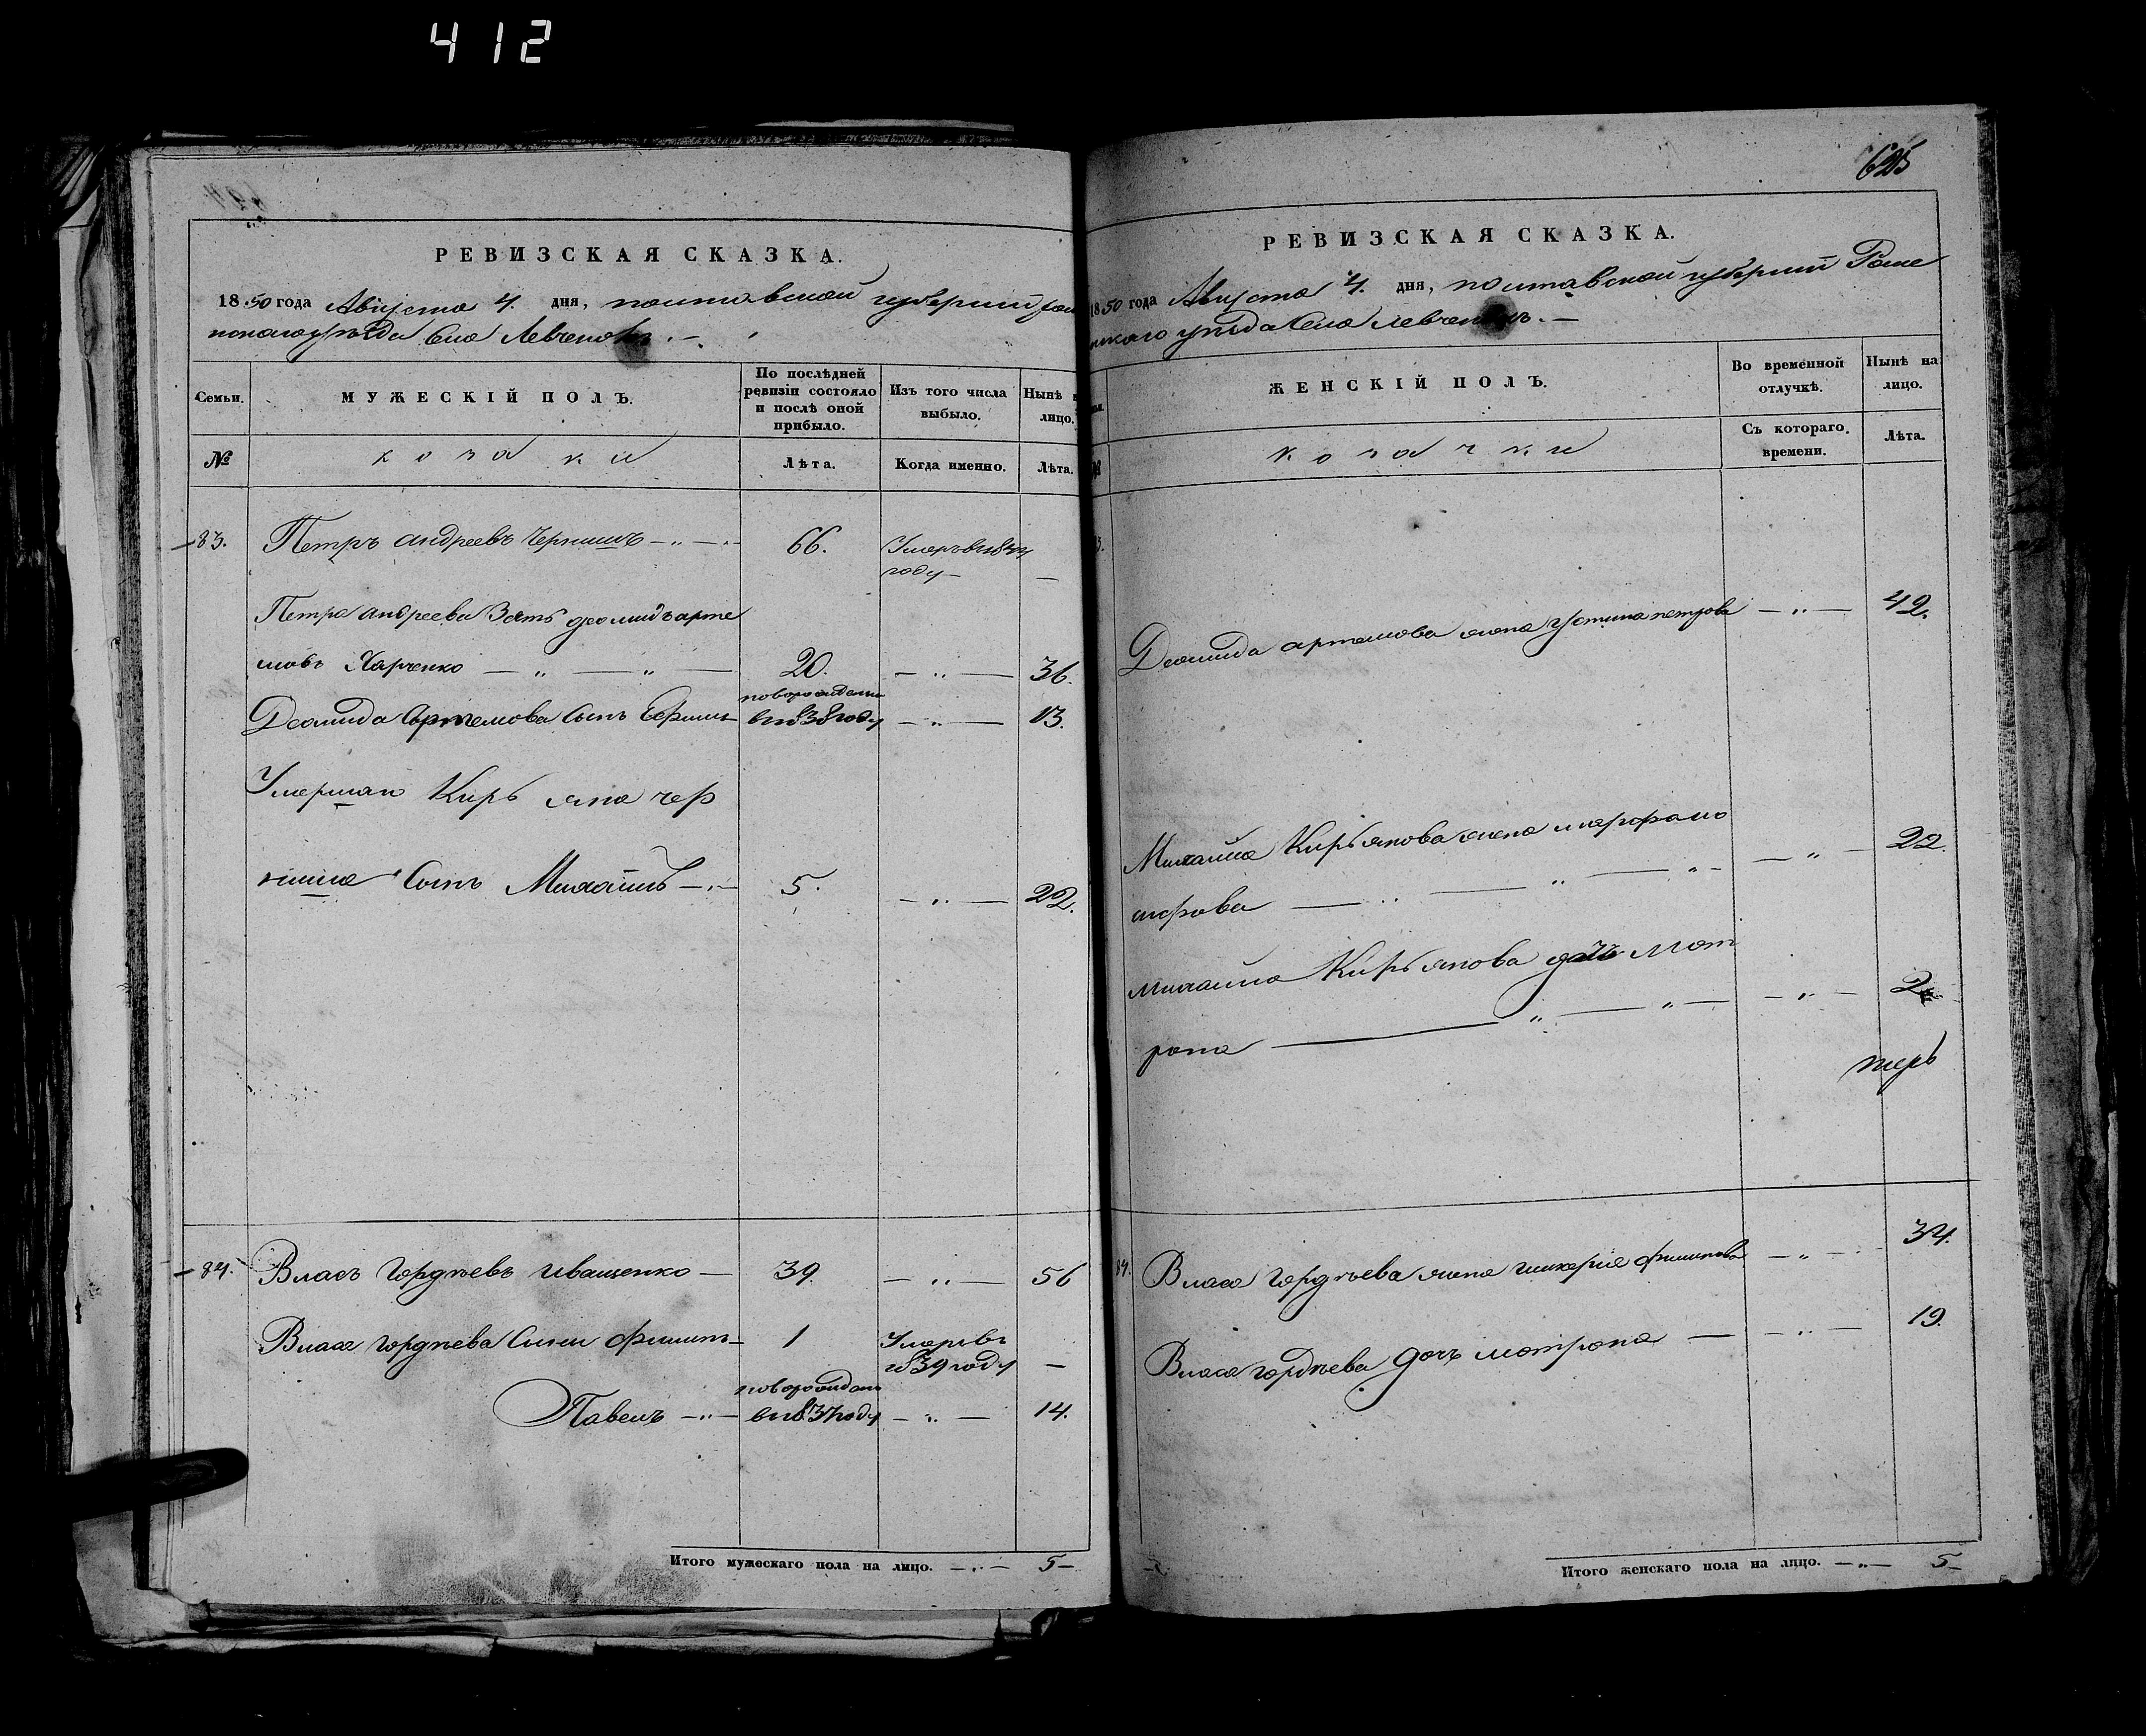 412
625
РЕВИЗСКАЯ СКАЗКА.
1850 года Августа 4. дня, полтавской губернии ром
уезда Села Левченокъ.
Семьи. МУЖЕСКІЙ ПОЛЪ. По послѣдней ревизіи состояло и послѣ оной прибыло. Изъ того числа выбыло. Нынѣ на лицо.
№ козаки Лѣта. Когда именно. Лѣта.
83. Петръ андреевъ Чернишъ 66. Умеръ в году —
Петра андреева Зять деомидъ арте
мовъ Харченко 20. 36.
Деомида Артемова Сынъ Ефимъ новорожденъ в 1838 году 13.
Умершаго Кирьяна чер
ниша Сынъ Михайлъ 5. 22.
84. Власъ гордѣевъ иващенко 39. 56
Власа гордѣева Сыны филипъ 1 Умеръ в 1839 году —
Павелъ новорожден в 1837 году 14.
Итого мужескаго пола на лицо. 5
РЕВИЗСКАЯ СКАЗКА.
1850 года Августа 4. дня, полтавской губернии Роме
нскаго уѣзда Села левченокъ.
ЖЕНСКІЙ ПОЛЪ. Во временной отлучкѣ. Нынѣ на лицо.
козачки Съ котораго времени. Лѣта.
Деомида артемова жена устина петрова 42.
Михайла Кирьянова жена 22.
Михайла Кирьянова дочь мот
рона 2
84. Власа гордѣева жена гликерия филипова 34.
Власа гордѣева дочь мотрона 19.
Итого женскаго пола на лицо. 5